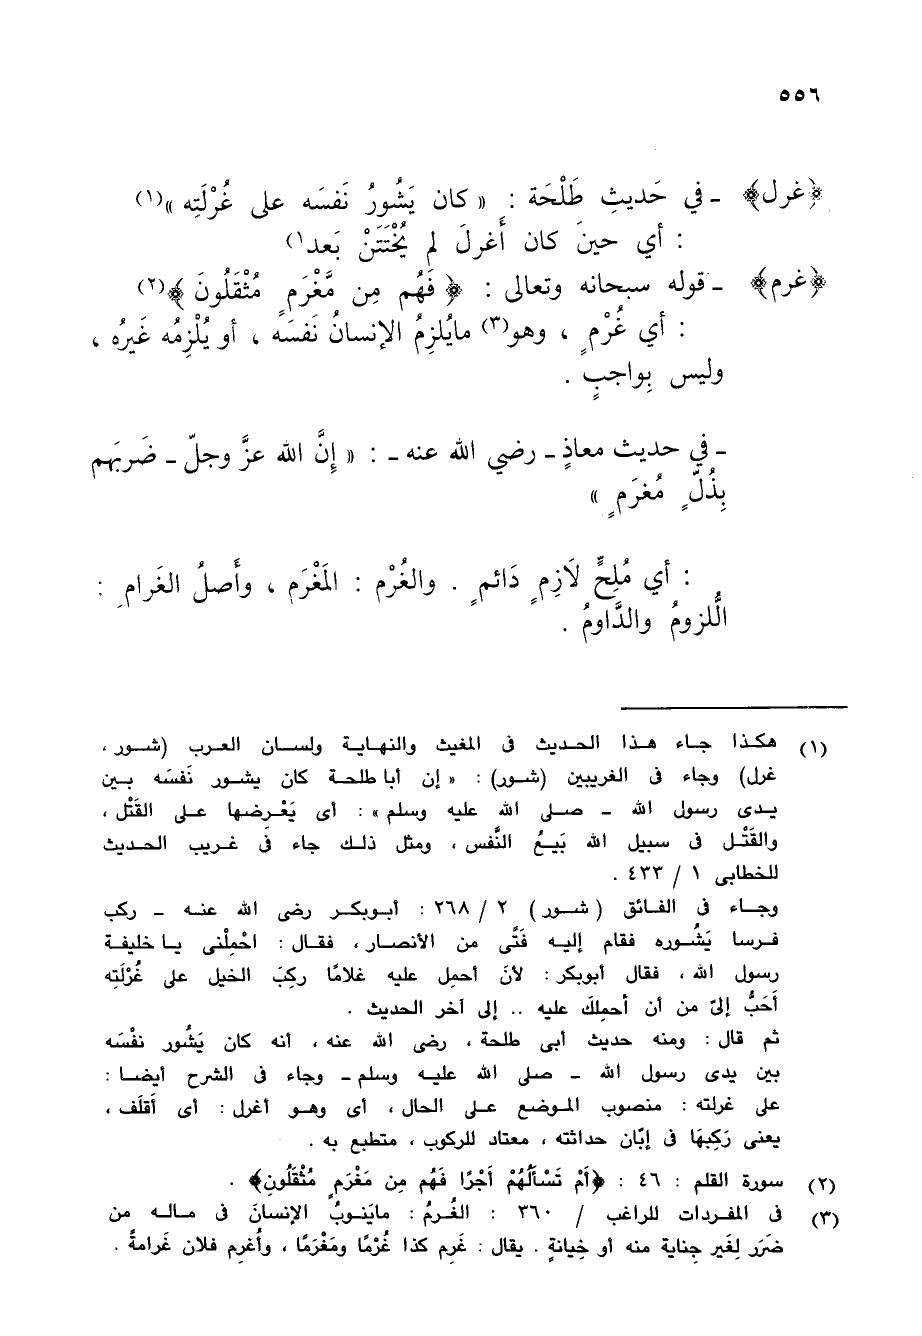 ٥٥٦
﴿غرل﴾ ـ في حَديثِ طَلْحَة : « كان يَشُورُ نَفسَه على غُرْلَتِه »(١)
: أي حينَ كان أَغرلَ لم يُخْتَتَنْ بَعد١)
﴿غرم﴾ ـ قوله سبحانه وتعالى : ﴿ فَهُم مِن مَّغْرَمٍ مُثْقَلُونَ ﴾(٢)
: أي غُرْمٍ ، وهو(٣) مايُلزِمُ الإنسانُ نَفسَه ، أو يُلْزِمُه غَيرُه ،
وليس بِواجبٍ .
ـ في حديث معاذٍ ـ رضي الله عنه ـ : « إنَّ الله عزَّ وجلّ ـ ضَربَهم
بِذُلٍّ مُغرَمٍ »
: أي مُلِحٍّ لَازِمٍ دَائمٍ . والغُرْم : المَغْرَم ، وأَصلُ الغَرامِ :
الُّلزومُ والدَّوامُ .
(١) هكذا جاء هذا الحديث فى المغيث والنهاية ولسان العرب (شور ،
غرل) وجاء فى الغريبين (شور) : « إن أبا طلحة كان يشور نَفسَه بين
يدى رسول الله ـ صلى الله عليه وسلم » : أى يَعْرضها على القَتْل ،
والقَتْل فى سبيل الله بَيعُ النَّفس ، ومثل ذلك جاء فى غريب الحديث
للخطابى ١ / ٤٣٣ .
وجاء فى الفائق ( شور ) ٢ / ٢٦٨ : أبوبكر رضى الله عنه ـ ركب
فرسا يَشُوره فقام إليه فَتًى من الأنصار ، فقال : احْمِلْنى يا خليفة
رسول الله ، فقال أبوبكر : لأن أحمِل عليه غلامًا ركِبَ الخيل على غُرْلَتِه
أَحَبُّ إلىّ من أن أحمِلكَ عليه .. إلى آخر الحديث .
ثم قال : ومنه حديث أبى طلحة ، رضى الله عنه ، أنه كان يَشُور نفْسَه
بين يدى رسول الله ـ صلى الله عليه وسلم ـ وجاء فى الشرح أيضا :
على غرلته : منصوب الموضع على الحال ، أى وهو أغرل : أى أقلَف ،
يعنى رَكِبَهَا فى إبَّان حداثته ، معتاد للركوب ، متطبع به .
(٢) سورة القلم : ٤٦ : ﴿أَمْ تَسْأَلُهُمْ أجْرًا فَهُم مِن مَغْرَمٍ مُثْقَلُونِ﴾ .
(٣) فى المفردات للراغب / ٣٦٠ : الغُرمُ : ماينوبُ الإنسانَ فى ماله من
ضَرَر لِغَير جِناية منه أو خِيانةٍ . يقال : غَرِم كذا غُرْمًا ومَغْرَمًا ، وأُغرِم فلان غَرامةً .